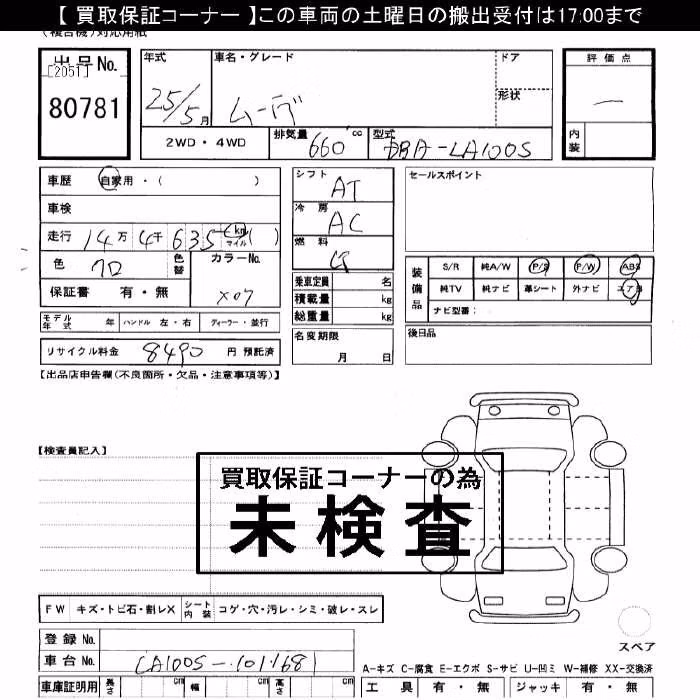 【 買取保証コーナー 】この車両の土曜日の搬出受付は17:00まで
(複合機)対応用紙
出品No.
[2051]
80781
年式
25/5月
車名・グレード
ムーヴ
ドア
形状
評価点
内装
2WD・4WD
排気量
660 cc
型式
DBA-LA100S
車歴 自家用・( )
車検
走行 14万 4千 635 km マイル ( )
色
色替
カラーNo.
X07
保証書 有・無
シフト
AT
冷房
AC
燃料
乗車定員 名
積載量 kg
総重量 kg
セールスポイント
装備品
S/R 純A/W P/S P/W ABS
純TV 純ナビ 革シート 外ナビ エアB
ナビ型番:
モデル年式 年 ハンドル 左・右 ディーラー・並行
リサイクル料金 8490 円 預託済
名変期限
月 日
後日品
【出品店申告欄(不良箇所・欠品・注意事項等)】
【検査員記入】
買取保証コーナーの為
未検査
FW キズ・トビ石・割レX シート内装 コゲ・穴・汚レ・シミ・破レ・スレ
スペア
登録No.
車台No. LA100S-101168
A-キズ C-腐食 E-エクボ S-サビ U-凹ミ W-補修 XX-交換済
車庫証明用 長さ cm 幅 cm 高さ cm
工具 有・無 ジャッキ 有・無